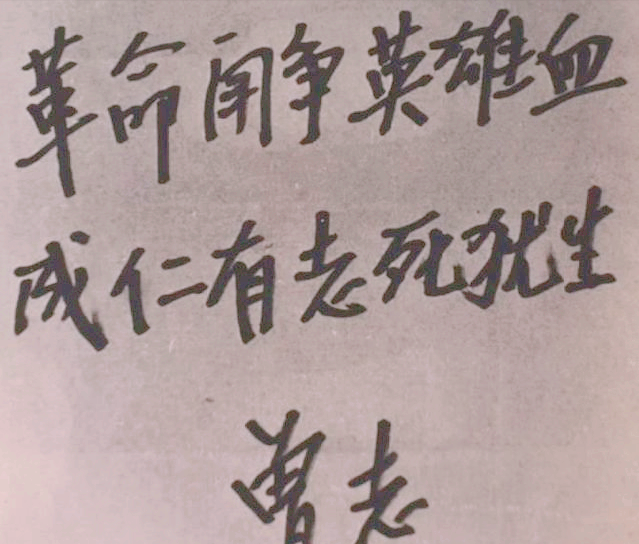 革命鬥争英雄血
成仁有志死犹生
曾志